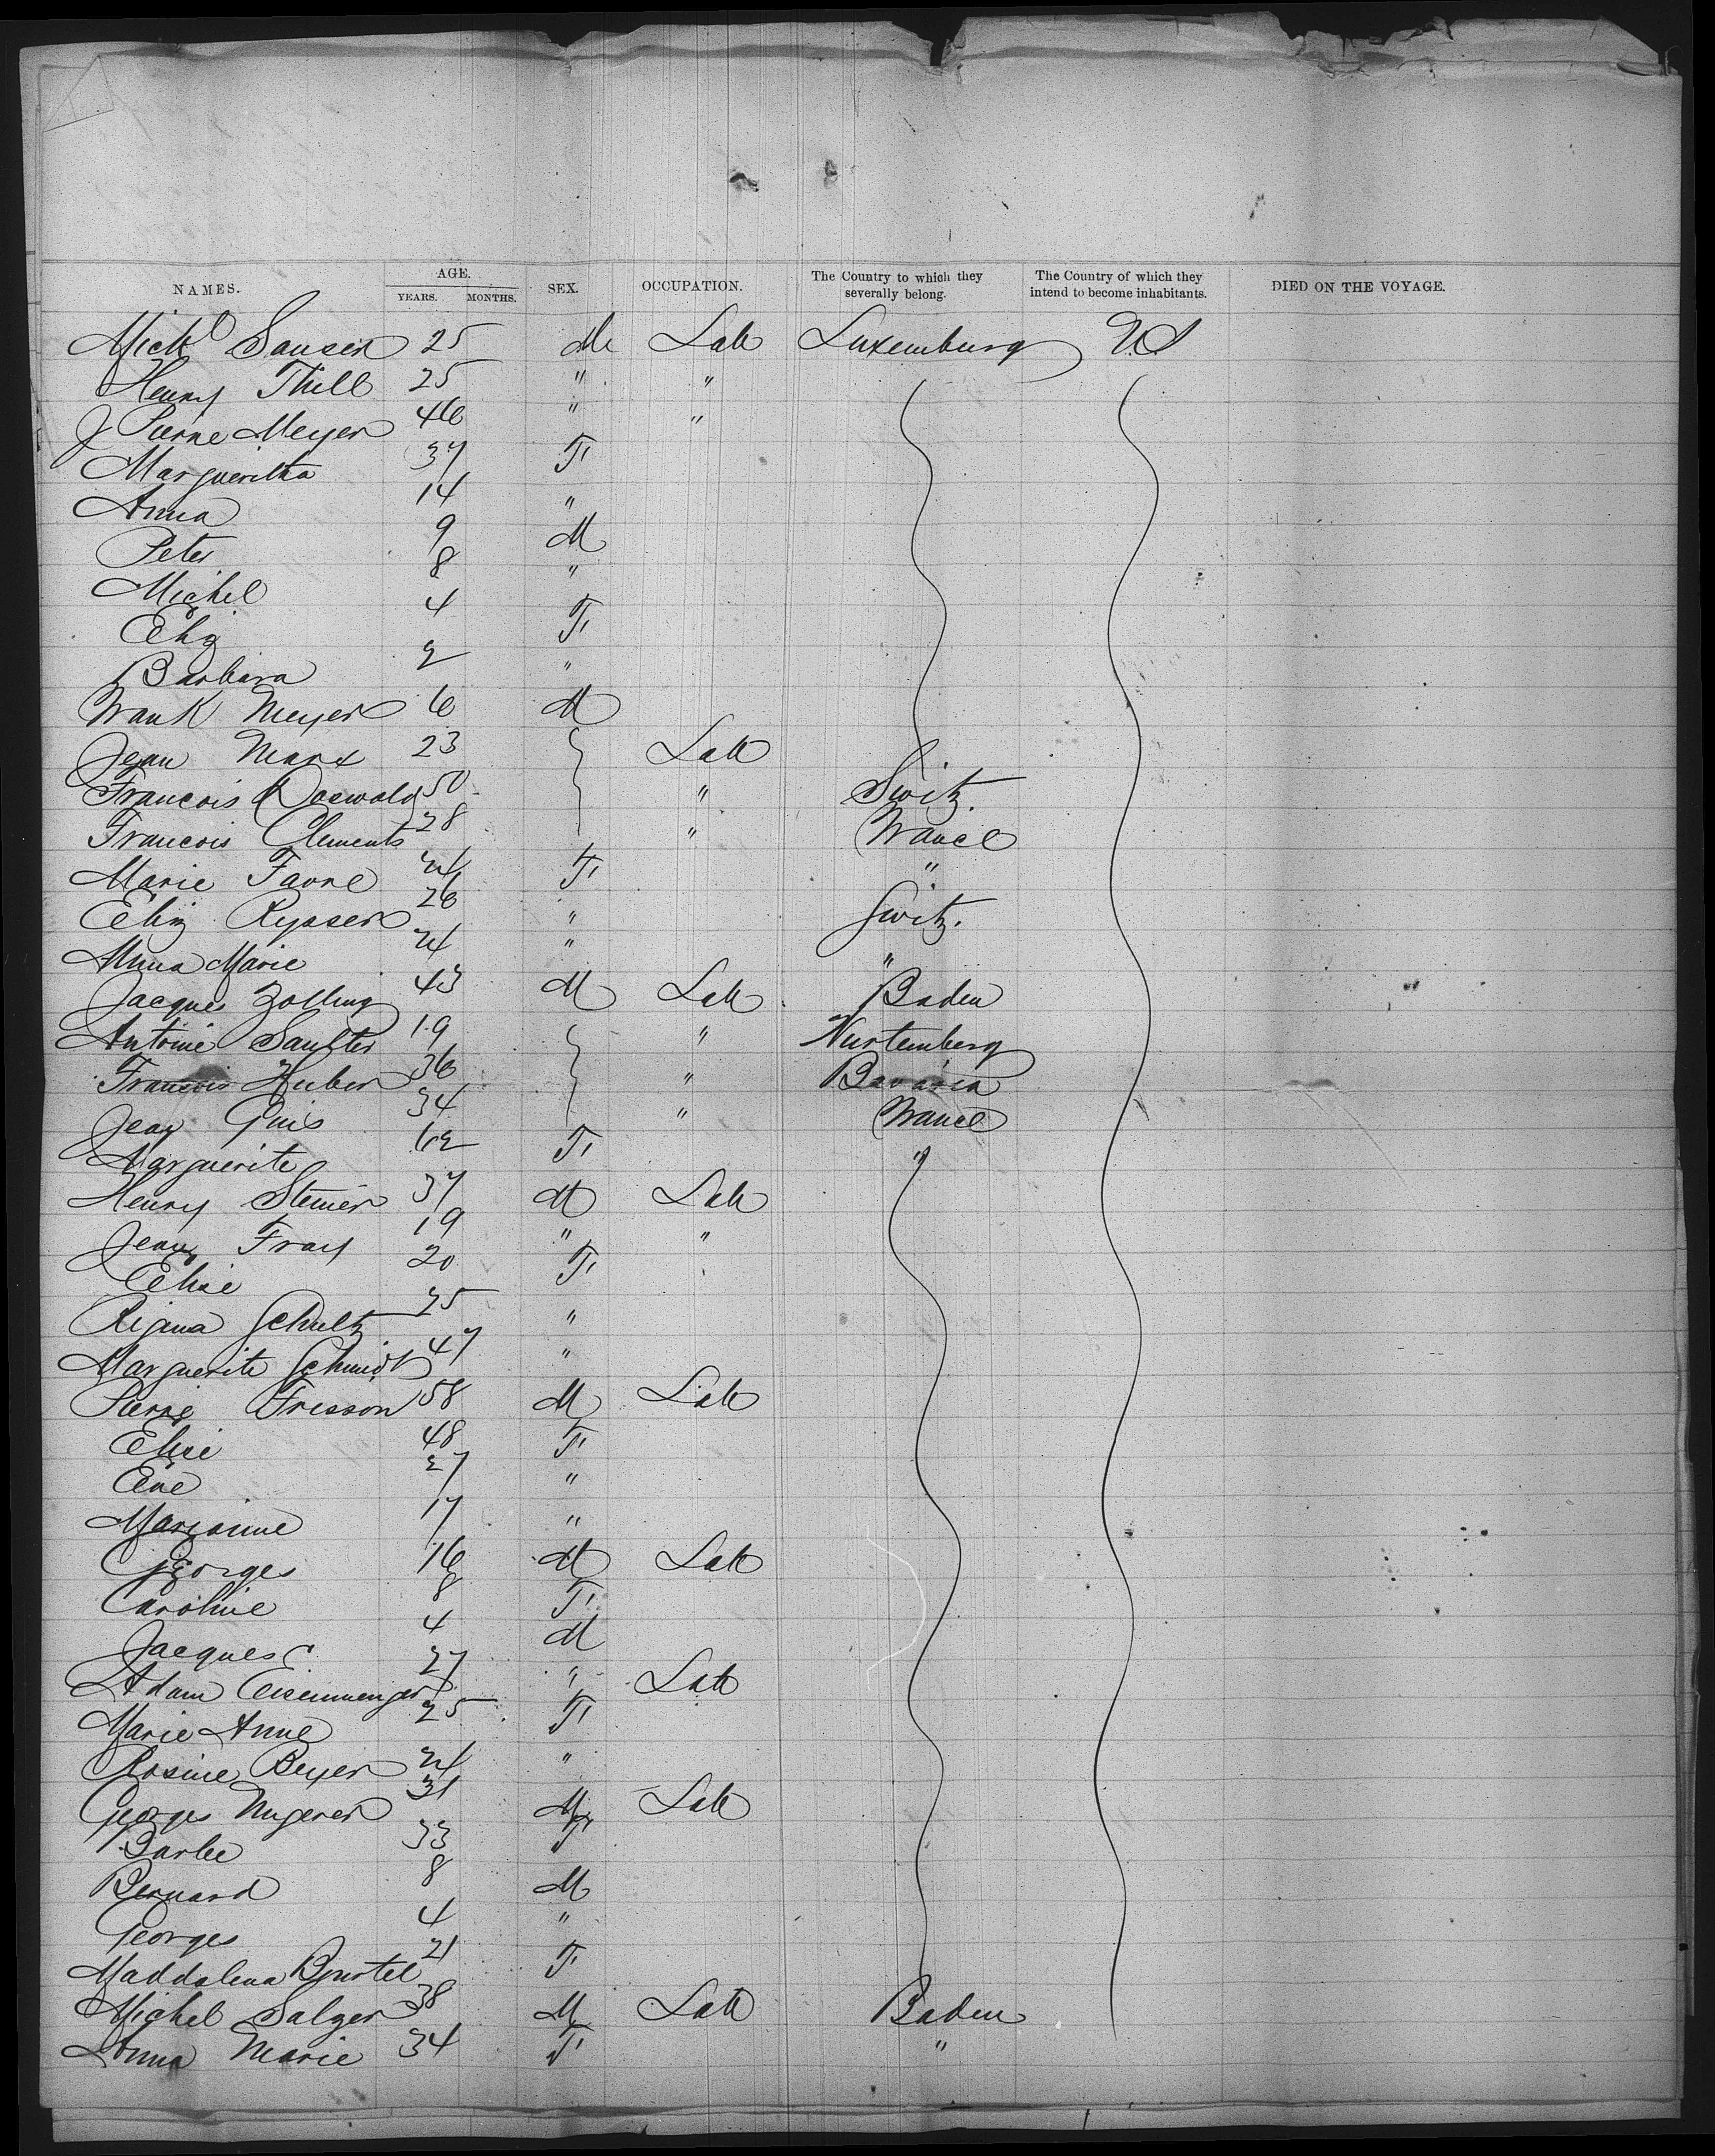 NAMES. AGE. YEARS. MONTHS. SEX. OCCUPATION. The Country to which they severally belong. The Country of which they intend to become inhabitants. DIED ON THE VOYAGE.
Michl Sauser 25 M Lab Luxemburg U.S
Henry Thill 25 " "
J Pierre Meyer 46 " "
Margueritha 37 F
Anna 14 "
Peter 9 M
Michel 8 "
Eliz 4 F
Barbara 2 "
Frank Meyer 6 M
Jean Marx 23 Lab
Francois Roswald 50 " Switz.
Francois Clements 28 " France
Marie Favre 24 F "
Eliz Rysser 26 " Switz.
Anna Marie 24 " "
Jacques Zolling 43 M Lab Baden
Antoine Saulter 19 " Wurtemberg
Francois Huber 36 " Bavaria
Jean Guis 34 " France
Marguerite 62 F "
Henry Steiner 37 M Lab
Jean Fray 19 " "
Elise 20 F
Rigina Schultz 25 "
Marguerite Schmidt 47 "
Pierre Fresson 58 M Lab
Elise 48 F
Eve 27 "
Marianne 17 "
Georges 16 M Lab
Caroline 8 F
Jacques 4 M
Adam Eisenmenger 27 " Lab
Marie Anne 25 F
Rosine Beyer 24 "
Georges Nugerer 31 M Lab
Barbe 33 F
Bernard 8 M
Georges 4 "
Maddalena 21 F
Michel Salger 38 M Lab Baden
Anna Marie 34 F "